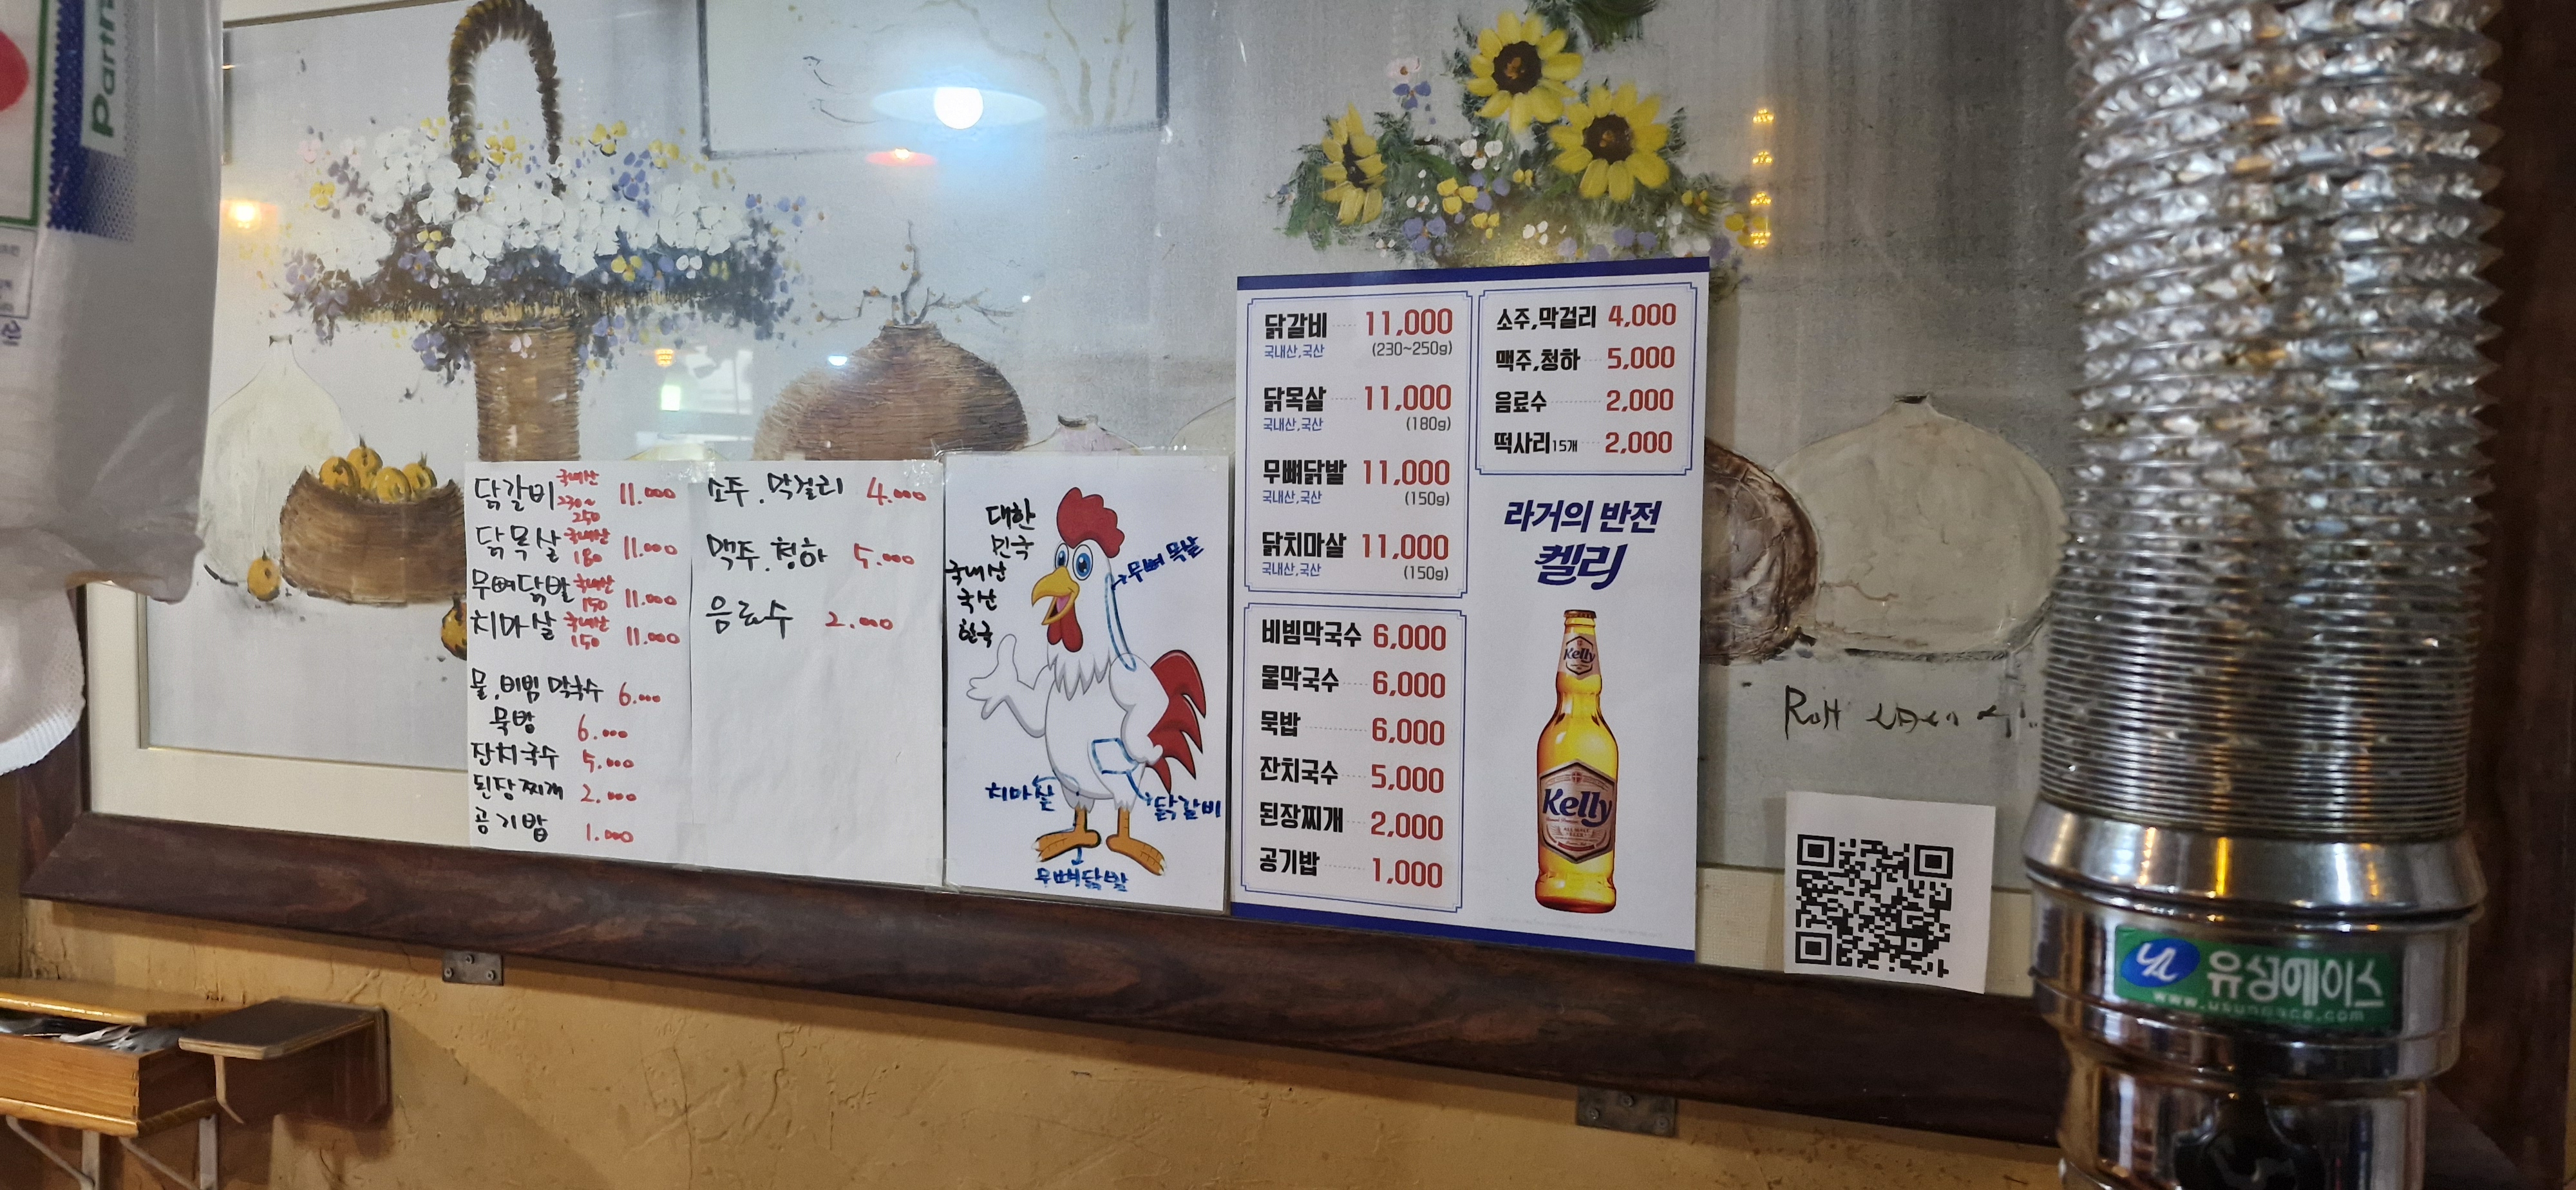 Partn
닭갈비 국내산 230~250 11.000
닭목살 국내산 180 11.000
무뼈닭발 국내산 150 11.000
치마살 국내산 150 11.000
물.비빔 막국수 6.000
묵밥 6.000
잔치국수 5.000
된장찌개 2.000
공기밥 1.000
소주.막걸리 4.000
맥주.청하 5.000
음료수 2.000
대한
민국
국내산
국산
한국
무뼈 목살
치마살
닭갈비
무뼈닭발
닭갈비 11,000
국내산,국산 (230~250g)
닭목살 11,000
국내산,국산 (180g)
무뼈닭발 11,000
국내산,국산 (150g)
닭치마살 11,000
국내산,국산 (150g)
비빔막국수 6,000
물막국수 6,000
묵밥 6,000
잔치국수 5,000
된장찌개 2,000
공기밥 1,000
소주,막걸리 4,000
맥주,청하 5,000
음료수 2,000
떡사리15개 2,000
라거의 반전
켈리
Kelly
Kelly
유성에이스